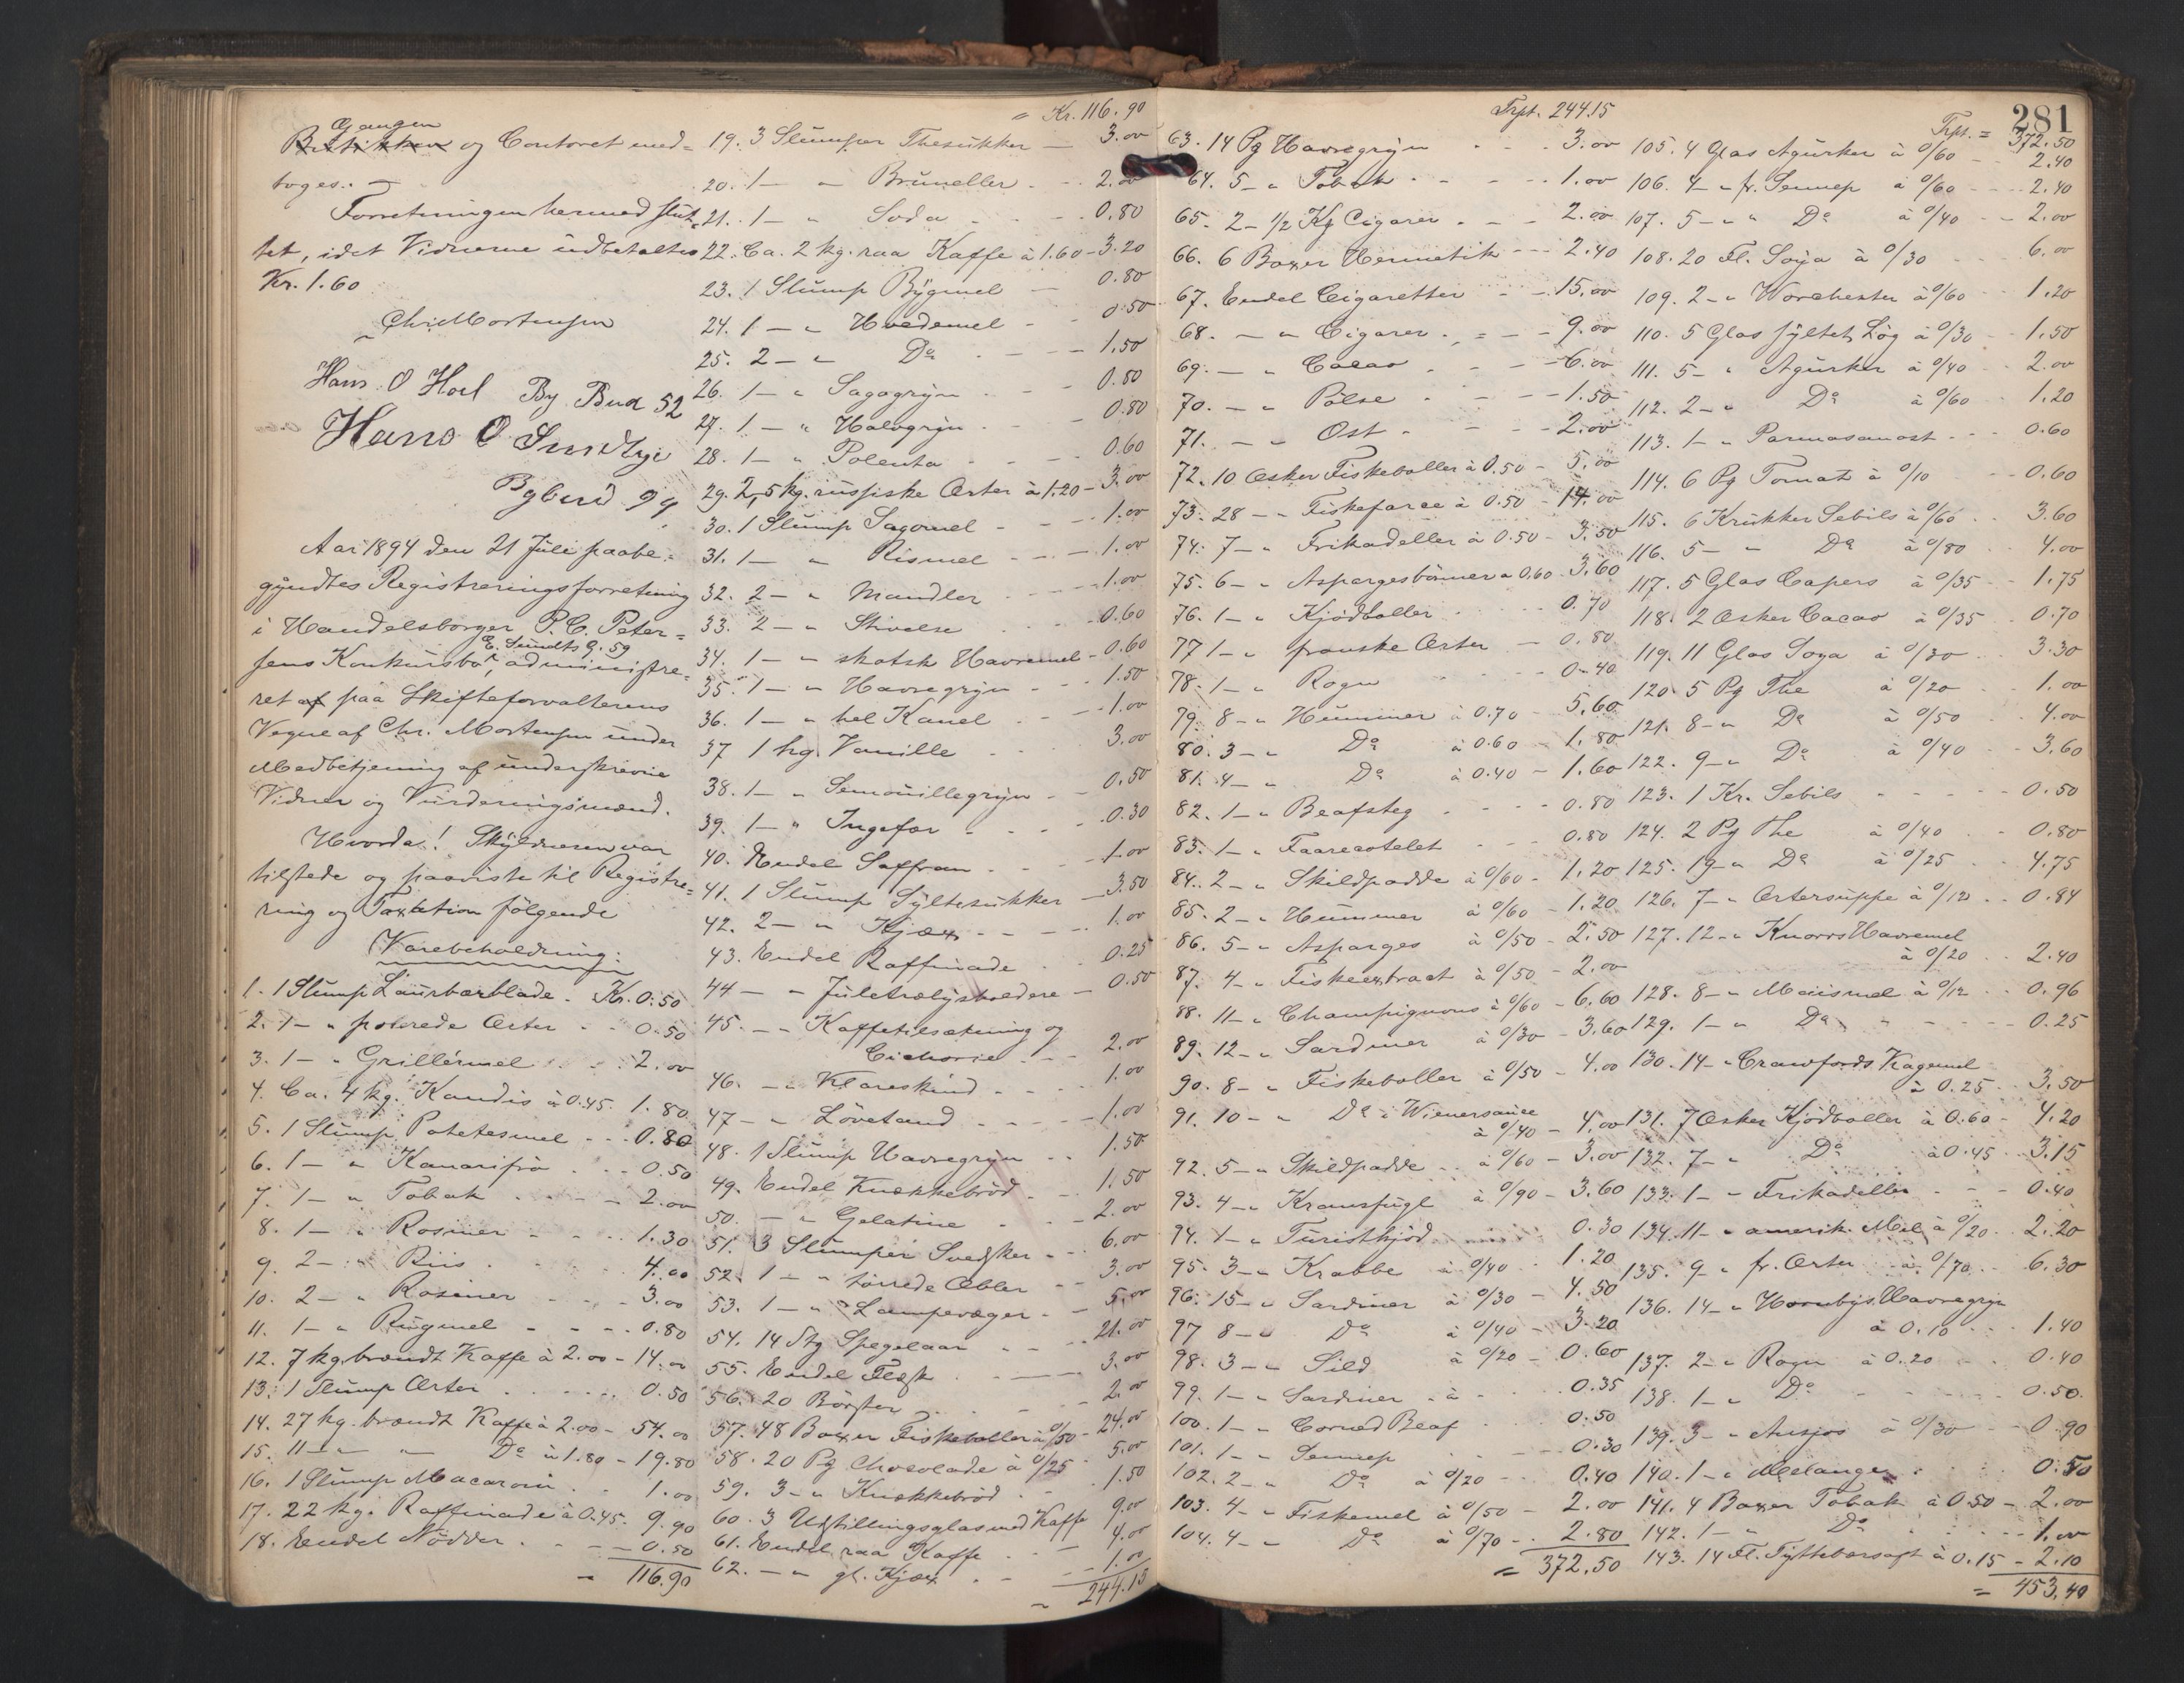 Gangen
Butikken og Contoret med=
toges. —
Forretningen hermed slut=
tet, idet Vidnerne udbetaltes
Kr. 1.60
Chr. Mortensen
Hans O Hoel By Bud 52
Hans O
Bybud 99
Aar 1894 den 21 Juli paabe=
gyndtes Registreringsforretning
i Handelsborger P. C. Peter=
E. Sundts G. 59
sens Konkursbo, administre=
ret af paa Skifteforvalterens
Vegne af Chr. Mortensen under
Medbetjening af underskrevne
Vidner og Vurderingsmænd.
Hvorda! Skyldneren var
tilstede og paaviste til Registre=
ring og Taxation følgende
Varebeholdning:
1. 1 Slump Laurbærblade . Kr. 0.50
2. 1 — " polerede Erter . . 0.50
3. 1 — " Grillérmel . . 2.00
4. Ca. 4 kg. Kandis à 0.45. 1.80
5. 1 Slump Potetesmel - - 0.80
6. 1 — " Kanarifrø . . . 0.50
7. 1 — " Tobak . . . . 2.00
8. 1 — " Rosiner - - . . 1.30
9. 2 — " Riis . . . . 4.00
10. 2 — " Rosiner - - . . 3.00
11. 1 — " Rugmel - - - . 0.80
12. 7 kg. brændt Kaffe à 2.00 - 14.00
13. 1 Slump Erter . . . . 0.50
14. 27 kg. brændt Kaffe à 2.00 - 54.00
15. 11 — " — Do à 1.80 - 19.80
16. 1 Slump Macaroni . . 1.00
17. 22 kg. Raffinade à 0.45. 9.90
18. Endel Nødder . . - - 0.50
= 116.90
= Kr. 116.90
19. 3 Slumper Thesukker — 3.00
20. 1 — " Bruneller . - - 2.00
21. 1 — " Soda - - - - 0.80
22. Ca. 2 kg. raa Kaffe à 1.60 - 3.20
23. 1 Slump Bygmel — 0.80
24. 1 — " Hvedemel - - 0.50
25. 2 — " Do - - - 1.50
26. 1 — " Sagogryn . - - 0.80
27. 1 — " Halvgryn . - - 0.80
28. 1 — " Polenta - - - 0.60
29. 2,5 kg. russiske Erter à 1.20 - 3.00
30. 1 Slump Sagomel - - - 1.00
31. 1 — " Rismel - - - 1.00
32. 2 — " Mandler - - - 1.00
33. 2 — " Stivelse . . . 0.60
34. 1 — " skotsk Havremel - 0.60
35. 1 — " Havregryn - - - 1.50
36. 1 — " hel Kanel . - - 1.00
37 1 hg. Vanille - - . . 3.00
38. 1 — " Semouillegryn - - 0.50
39. 1 — " Ingefær - - - . 0.30
40. Endel Saffran - - - 1.00
41. 1 Slump Syltesukker — 3.50
42. 2 — " Kjæx - - - - 1.00
43. Endel Raffinade . . 0.25
44 — " Juletrælysholdere — 0.50
45. — " Kaffetilsætning og
Cichorie - - 2.00
46. — " Klareskind - - - 1.00
47 — " Løvetand - - - 1.00
48. 1 Slump Havregryn - - 1.50
49. Endel Knækkebrød - . 1.50
50. — " Gelatine - - - 2.00
51. 3 Slumper Svedsker - - 6.00
52. 1 — " tørrede Æbler - - 3.00
53. 1 — " Lampevæger - - 5.00
54. 14 Stg Spegelaar - - - 21.00
55. Endel Flesk . . — — 3.00
56. 20 Børster . . - - 2.00
57. 48 Boxer Fiskeboller à 0/50 - 24.00
58. 20 Pg Chocolade à 0/25 . 5.00
59. 3 — " Knækkebrød . - 1.50
60. 3 Udstillingsglas med Kaffe 9.00
61. Endel raa Kaffe . . — 4.00
62. — " gl. Kjæx . - - - 1.00
= 244.15
Trpt. 244.15
63. 14 Pg Havregryn - - - 3.00
64. 5 — " Tobak - - - - 1.00
65. 2 — 1/2 Kg Cigarer . - - 2.00
66. 6 Boxer Hermetik - - - 2.40
67. Endel Cigaretter - - . 15.00
68. — " Cigarer . - - - 9.00
69. — " Cacao . - - - 6.00
70. — " Pølse . - - - 1.50
71. — " Ost . - - - 2.00
72. 10 Esker Fiskeboller à 0.50 - 5.00
73. 28 — " Fiskefarce à 0.50 - 14.00
74. 7 — " Frikadeller à 0.50 - 3.50
75. 6 — " Aspargesbønner à 0.60 . 3.60
76. 1 — " Kjødboller . . . . 0.70
77 1 — " franske Erter — 0.80
78. 1 — " Rogn . . . . 0.40
79. 8 — " Hummer à 0.70 - 5.60
80. 3 — " Do à 0.60 - 1.80
81. 4 — " Do à 0.40 - 1.60
82. 1 — " Beafsteg . - - - 0.80
83. 1 — " Faarecotelet - - - 0.80
84. 2 — " Skildpadde à 0/60 - 1.20
85. 2 — " Hummer à 0/60 - 1.20
86. 5 — " Asparges à 0/50 - 2.50
87. 4 — " Fiskeextract à 0/50 - 2.00
88. 11 — " Champignons à 0/60 - 6.60
89. 12 — " Sardiner à 0/30 - 3.60
90. 8 — " Fiskeboller à 0/50 - 4.00
91. 10 — " Do i Wienersauce
à 0/40 - 4.00
92. 5 — " Skildpadde . . à 0/60 - 3.00
93. 4 — " Kramsfugl à 0/90 - 3.60
94. 1 — " Turistkjød . . . . 0.30
95. 3 — " Krabbe à 0/40 . . 1.20
96. 15 — " Sardiner à 0/30 - 4.50
97 8 — " Do à 0/40 - 3.20
98. 3 — " Sild à 0/20 - 0.60
99. 1 — " Sardiner . à - . 0.35
100. 1 — " Corned Beaf . 0.50
101. 1 — " Sennep . - - - 0.30
102. 2 — " Do à 0/20 - - 0.40
103. 4 — " Fiskemel à 0/50 - 2.00
104. 4 — " Do à 0/70 - . 2.80
= 372.50
281
Trpt. = 372.50
105. 4 Glas Agurker à 0/60 - - 2.40
106. 4 — " fr. Sennep à 0/60 - - - 2.40
107. 5 — " " Do à 0/40 - - 2.00
108. 20 Fl. Soya à 0/30 - - 6.00
109. 2 — " Worchester à 0/60 - - 1.20
110. 5 Glas syltet Løg à 0/30 - - 1.50
111. 5 — " Agurker à 0/40 - - 2.00
112. 2 — " Do à 0/60 - - 1.20
113. 1 — " Parmasanost . - - 0.60
114. 6 Pg Tomat à 0/10 - - 0.60
115. 6 Krukker Sebils à 0/60 . . 3.60
116. 5 — " Do à 0/80 . . 4.00
117. 5 Glas Capers à 0/35 - - 1.75
118. 2 Esker Cacao à 0/35 . 0.70
119. 11 Glas Soya à 0/30 . 3.30
120. 5 Pg The à 0/20 - - 1.00
121. 8 — " Do à 0/50 - - 4.00
122. 9 — " Do à 0/40 - - 3.60
123. 1 Kr. Sebils - - - - - 0.50
124. 2 Pg The à 0/40 . - 0.80
125. 19 — " Do à 0/25 . . 4.75
126. 7 — " Ertersuppe à 0/12 . . 0.84
127. 12 — " Knorrs Havremel
à 0/20 . . 2.40
128. 8 — " Maismel à 0/12 . . 0.96
129. 1 — " Do - - - - - 0.25
130. 14 — " Crawfords Kagemel
à 0.25 . . 3.50
131. 7 Esker Kjødboller à 0.60 - 4.20
132. 7 — " Do à 0.45 . . 3.15
133. 1 — " Frikadeller . - - 0.40
134. 11 — " amerik. Mel à 0/20 . . 2.20
135. 9 — " fr. Erter à 0/70 . . 6.30
136. 14 — " Hornbys Havregryn
à 0.10 . . 1.40
137. 2 — " Rogn à 0.20 . . 0.40
138. 1 — " Do - - - - - 0.50
139. 3 — " Ansjos à 0/30 - - 0.90
140. 1 — " Melange . . . 0.50
141. 4 Boxer Tobak à 0.50 - 2.00
142. 1 — " Do - - - 1.00
143. 14 Fl. Tyttebærsaft à 0.15 - 2.10
= 453.40